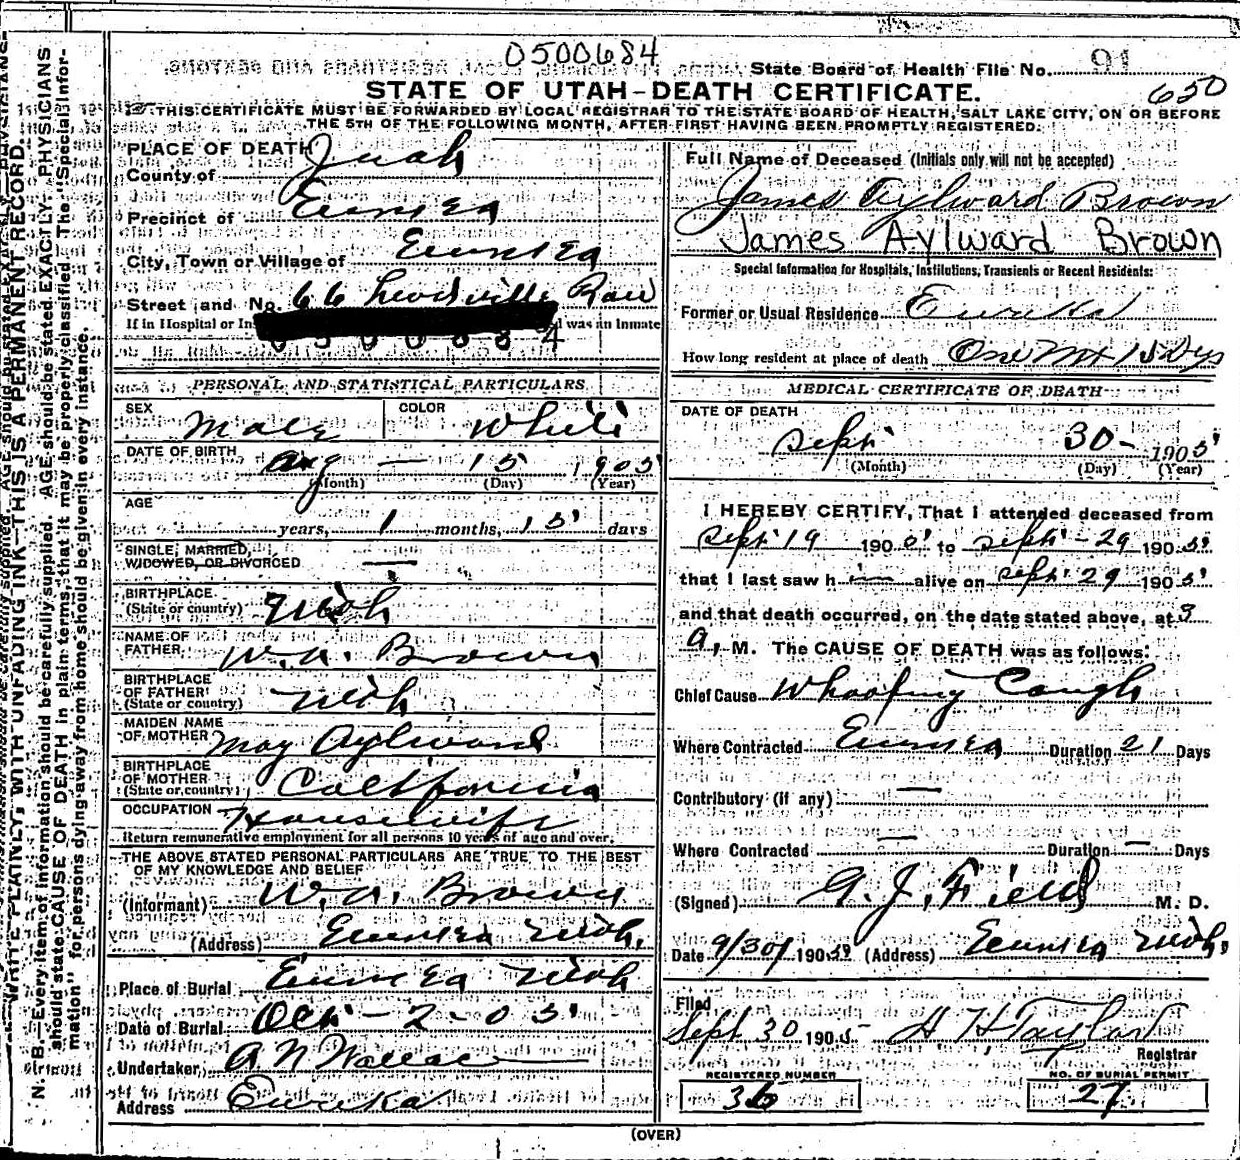 0500684
State Board of Health File No. 91
650
STATE OF UTAH—DEATH CERTIFICATE.
THIS CERTIFICATE MUST BE FORWARDED BY LOCAL REGISTRAR TO THE STATE BOARD OF HEALTH, SALT LAKE CITY, ON OR BEFORE
THE 5TH OF THE FOLLOWING MONTH, AFTER FIRST HAVING BEEN PROMPTLY REGISTERED.
WRITE PLAINLY, WITH UNFADING INK—THIS IS A PERMANENT RECORD.
N. B.—Every item of information should be carefully supplied. AGE should be stated EXACTLY. PHYSICIANS
should state CAUSE OF DEATH in plain terms, that it may be properly classified. The "Special Infor-
mation" for persons dying away from home should be given in every instance.
PLACE OF DEATH
County of Juab
Precinct of Eureka
City, Town or Village of Eureka
Street and No. 66 Leadville Row
If in Hospital or In was an Inmate
0500684
PERSONAL AND STATISTICAL PARTICULARS
SEX Male COLOR White
DATE OF BIRTH Aug — 15 1905
(Month) (Day) (Year)
AGE
years, 1 months, 15 days
SINGLE, MARRIED,
WIDOWED, OR DIVORCED —
BIRTHPLACE
(State or country) Utah
NAME OF
FATHER W. A. Brown
BIRTHPLACE
OF FATHER
(State or country) Utah
MAIDEN NAME
OF MOTHER May Aylward
BIRTHPLACE
OF MOTHER
(State or country) California
OCCUPATION Housewife
Return remunerative employment for all persons 10 years of age and over.
THE ABOVE STATED PERSONAL PARTICULARS ARE TRUE TO THE BEST
OF MY KNOWLEDGE AND BELIEF
(Informant) W. A. Brown
(Address) Eureka Utah.
Place of Burial Eureka Utah
Date of Burial Oct - 2 - 05
Undertaker, A N Wallace
Address Eureka
Full Name of Deceased (Initials only will not be accepted)
James Aylward Brown
James Aylward Brown
Special Information for Hospitals, Institutions, Transients or Recent Residents:
Former or Usual Residence Eureka
How long resident at place of death One Mt 15 Dys
MEDICAL CERTIFICATE OF DEATH
DATE OF DEATH
Sept 30- 1905
(Month) (Day) (Year)
I HEREBY CERTIFY, That I attended deceased from
Sept 19 1905 to Sept - 29 1905
that I last saw him alive on Sept 29 1905
and that death occurred, on the date stated above, at 9
a, M. The CAUSE OF DEATH was as follows:
Chief Cause Whoofing Cough
Where Contracted Eureka Duration 21 Days
Contributory (if any) —
Where Contracted — Duration — Days
(Signed) G. J. Field M. D.
Date 9/30/ 1905 (Address) Eureka Utah.
Filed
Sept 30 1905 H H Taylor
Registrar
REGISTERED NUMBER
36
NO. OF BURIAL PERMIT
27
(OVER)